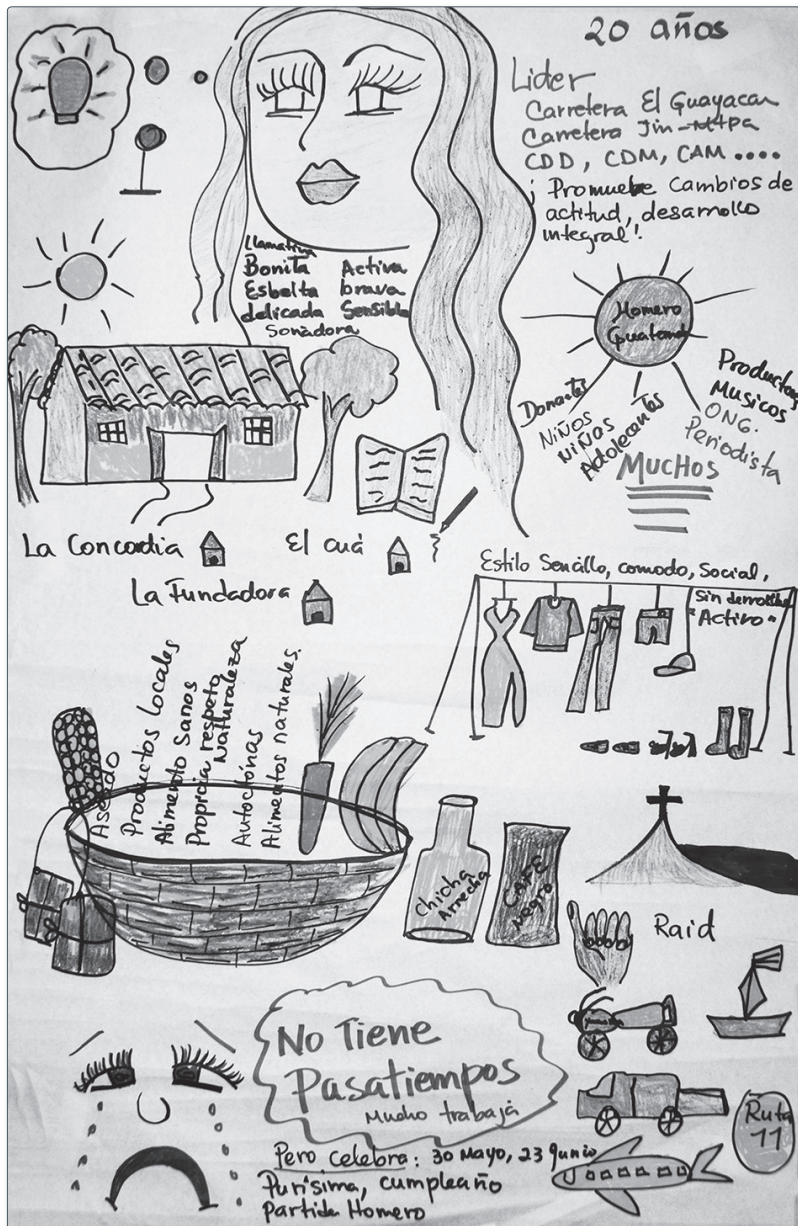 20 años
Lider
Carretera El Guayacan
Carretera Jin-Mtpa
CDD, CDM, CAM ....
¡Promueve Cambios de
actitud, desarrollo
integral!
Llamativa
Bonita Activa
Esbelta brava
delicada Sensible
Soñadora
Homero
Donantes
NiÑOS
NiÑAS
Adolecentes
MUCHOS
Productores
Musicos
ONG.
Periodista
La Concordia
El cuá
La Fundadora
Estilo Sencillo, comodo, Social,
Sin derroche
"Activo"
Aseado
Productos locales
Alimento Sanos
Propicia respeto
Naturaleza
Autoctonas
Alimentos naturales.
Chicha
Arrecha
CAFE
Negro
Raid
No Tiene
Pasatiempos
Mucho trabaja
Ruta
11
Pero celebra: 30 Mayo, 23 Junio
Purísima, cumpleaño
Partida Homero